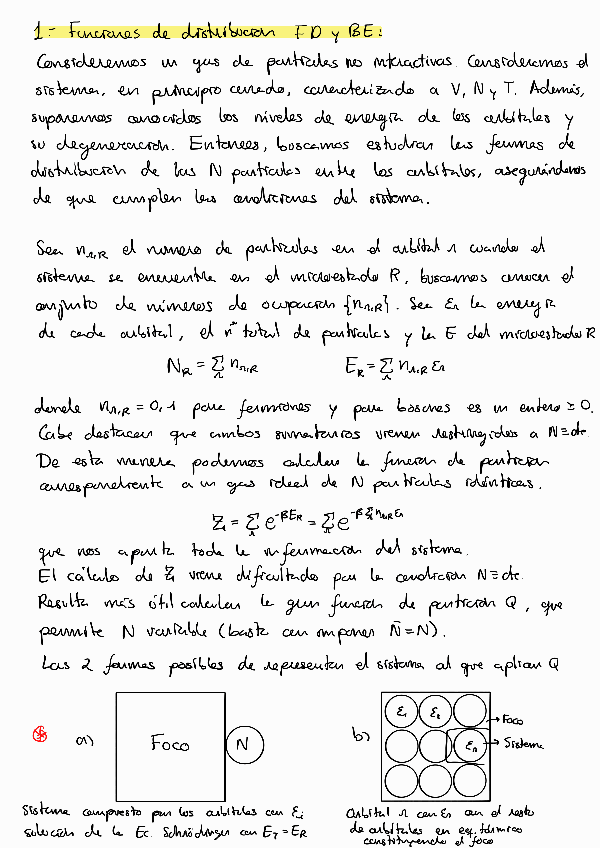 1- Funciones de distribución FD y BE:
Consideremos un gas de partículas no interactivas. Consideremos el
sistema, en principio cerrado, caracterizado a V, N y T. Además,
suponemos conocidos los niveles de energía de los orbitales y
su degeneración. Entonces, buscamos estudiar las formas de
distribución de las N partículas entre los orbitales, asegurándonos
de que cumplen las condiciones del sistema.
Sea n_{r,R} el número de partículas en el orbital r cuando el
sistema se encuentre en el microestado R, buscamos conocer el
conjunto de números de ocupación {n_{r,R}}. Sea ε_r la energía
de cada orbital, el nº total de partículas y la E del microestado R
N_R = Σ_r n_{r,R} E_R = Σ_r n_{r,R} ε_r
donde n_{r,R} = 0,1 para fermiones y para bosones es un entero ≥ 0.
Cabe destacar que ambos sumatorios vienen restringidos a N≡cte.
De esta manera podemos calcular la función de partición
correspondiente a un gas ideal de N partículas idénticas.
Z = Σ_r e^{-βE_R} = Σ_r e^{-βΣ n_{r,R} ε_r}
que nos aporta toda la información del sistema.
El cálculo de Z viene dificultado por la condición N≡cte.
Resulta más útil calcular la gran función de partición Q, que
permite N variable (basta con imponer N̄=N).
Las 2 formas posibles de representar el sistema al que aplican Q
a) Foco N
b) ε_1 ε_2 ε_n → Foco → Sistema
Sistema compuesto por los orbitales con ε_i
solución de la Ec. Schrödinger con E_T = E_R
Orbital r con ε_r con el resto
de orbitales en eq. térmico
constituyendo el foco